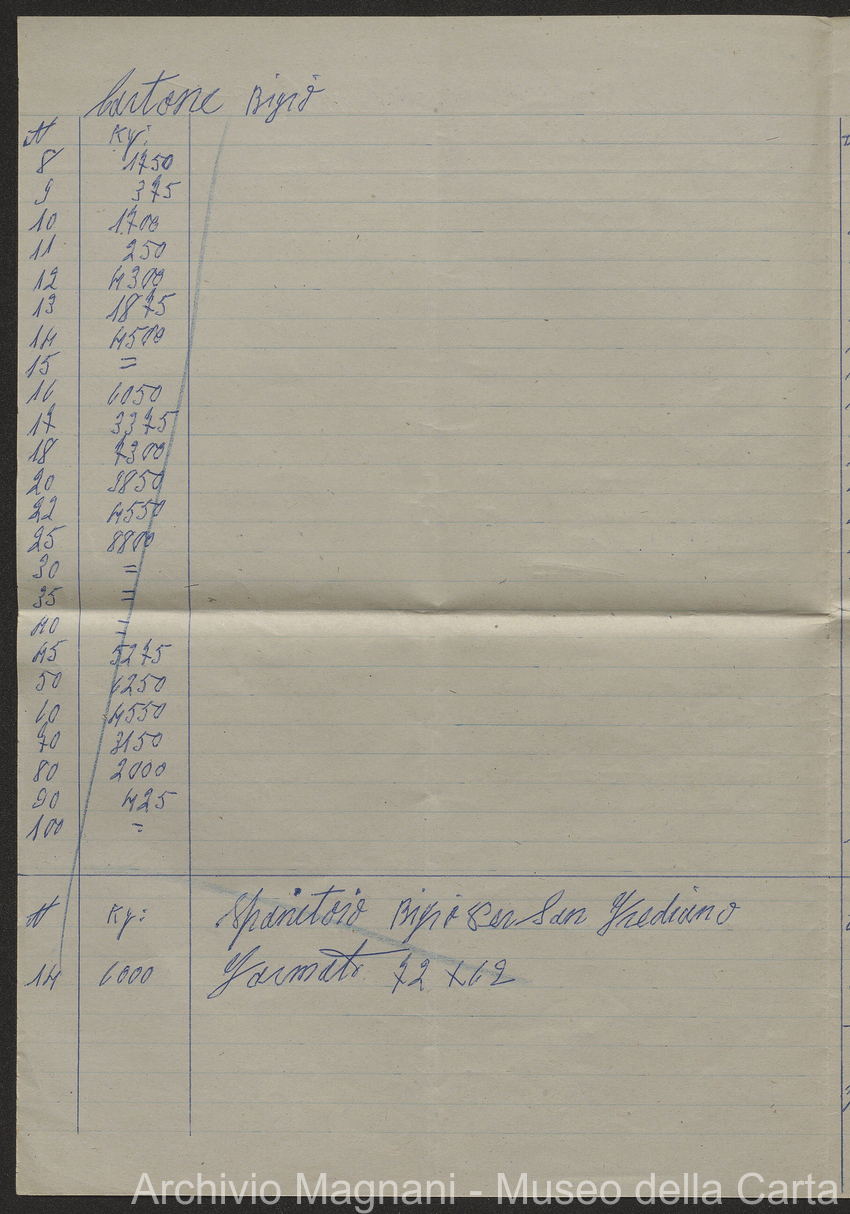 Cartone Bigio
N Kg:
8 1750
9 375
10 1700
11 250
12 4300
13 1875
14 4500
15 =
16 6050
17 3375
18 7300
20 3850
22 4550
25 8800
30 =
35 =
40 =
45 5275
50 6250
60 4550
70 3150
80 2000
90 425
100 =
N Kg: Bigio Per San Frediano
14 6000 Formato 72 x 62
Archivio Magnani - Museo della Carta